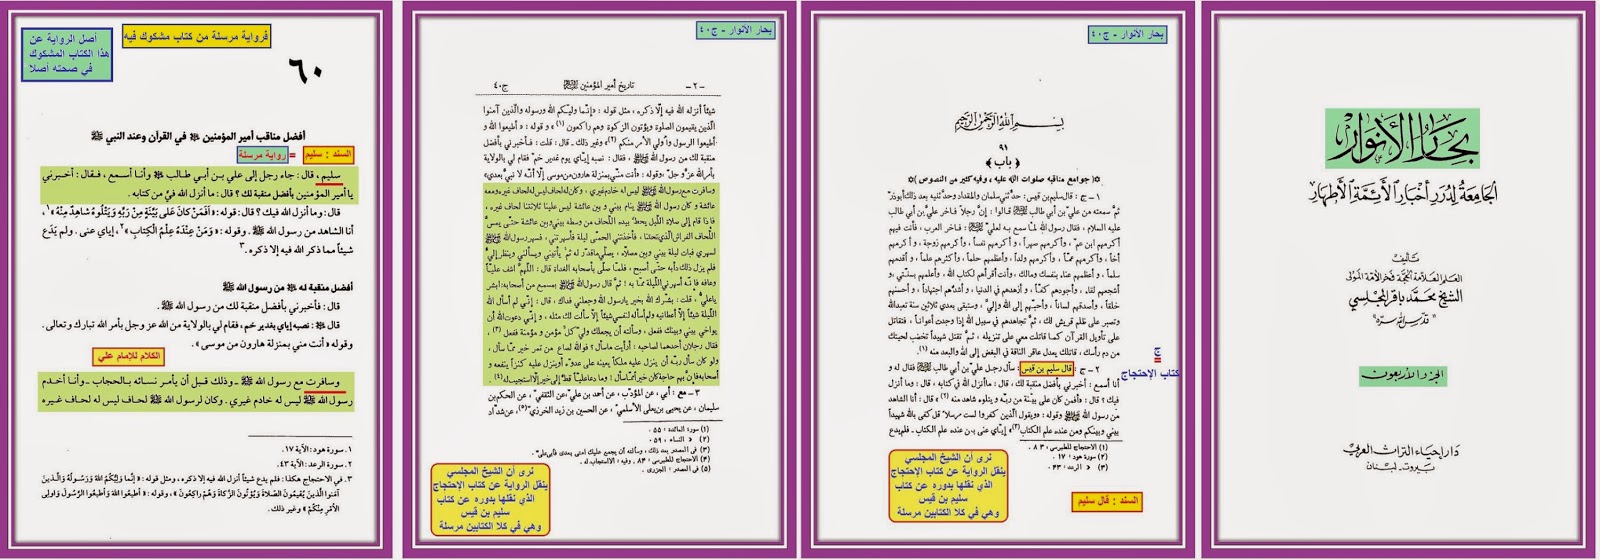 بحار الأنوار
الجامعة لدرر أخبار الأئمة الأطهار
تأليف
العلم العلامة الحجة فخر الأمة المولى
الشيخ محمد باقر المجلسي
"قدس الله سره"
الجزء الأربعون
دار إحياء التراث العربي
بيروت - لبنان
بحار الأنوار - ج٤٠
بسم الله الرحمن الرحيم
٩١
﴿ باب ﴾
✡( جوامع مناقبه صلوات الله عليه ، وفيه كثير من النصوص )✡
١ - ج : قال سليم بن قيس : حدّثني سلمان والمقداد وحدّثنيه بعد ذلك أبوذرّ
ثمّ سمعته من عليّ بن أبي طالب قالوا : إنّ رجلاً فاخر عليّ بن أبي طالب
عليه السلام ، فقال رسول الله لمّا سمع به لعليّ : فاخر العرب ، فأنت فيهم
أكرمهم ابن عمّ ، وأكرمهم صهراً ، وأكرمهم نفساً ، وأكرمهم زوجة ، وأكرمهم
أخاً ، وأكرمهم عمّاً ، وأكرمهم ولداً ، وأعظمهم حلماً ، وأكثرهم علماً ، وأقدمهم
سلماً ، وأعظمهم عناء بنفسك ومالك ، وأنت أقرأهم لكتاب الله ، وأعلمهم بسنّتي ، و
أشجعهم لقاء ، وأجودهم كفّاً ، وأزهدهم في الدنيا ، وأشدّهم اجتهاداً ، وأحسنهم
خلقاً ، وأصدقهم لساناً ، وأحبّهم إلى الله وإليّ ، وستبقى بعدي ثلاثين سنة تعبد الله
وتصبر على ظلم قريش لك ، ثمّ تجاهدهم في سبيل الله إذا وجدت أعواناً ، فتقاتل
على تأويل القرآن كما قاتلت معي على تنزيله ، ثمّ تقتل شهيداً تخضب لحيتك
من دم رأسك ، قاتلك يعدل عاقر الناقة في البغض إلى الله والبعد منه (١).
٢ - ج : قال سليم بن قيس : سأل رجل عليّ بن أبي طالب ﷺ فقال له و
أنا أسمع : أخبرني بأفضل منقبة لك ، قال : ما أنزل الله في كتابه ، قال : وما أنزل الله
فيك ؟ قال : «أفمن كان على بيّنة من ربّه ويتلوه شاهد منه (٢)» قال : أنا الشاهد
من رسول الله ﷺ وقوله : «ويقول الّذين كفروا لست مرسلاً قل كفى بالله شهيداً
بيني وبينكم ومن عنده علم الكتاب (٣)» إيّاي عنى بمن عنده علم الكتاب ـ فلم يدع
(١) الاحتجاج للطبرسي : ٨٣ .
(٢) هود : ١٧ .
(٣) الرعد : ٤٣ .
ج
=
كتاب الإحتجاج
نرى أن الشيخ المجلسي
ينقل الرواية عن كتاب الإحتجاج
الذي نقلها بدوره عن كتاب
سليم بن قيس
وهي في كلا الكتابين مرسلة
السند : قال سليم
بحار الأنوار - ج٤٠
-٢- تاريخ أمير المؤمنين ﷺ ج٤٠
شيئاً أنزله الله فيه إلّا ذكره ، مثل قوله : «إنّما وليّكم الله ورسوله والّذين آمنوا
الّذين يقيمون الصلوة ويؤتون الزكوة وهم راكعون (١)» وقوله : «أطيعوا الله و
أطيعوا الرسول وأولي الأمر منكم (٢)» وغير ذلك . قال : قلت : فأخبرني بأفضل
منقبة لك من رسول الله ﷺ ، فقال : نصبه إيّاي يوم غدير خمّ ، فقام لي بالولاية
بأمر الله عزّ وجلّ ، وقوله : «أنت منّي بمنزلة هارون من موسى إلّا أنّه لا نبيّ بعدي»
وسافرت مع رسول الله ﷺ ليس له خادم غيري ، وكان له لحاف ليس له لحاف غيره ومعه
عائشة وكان رسول الله ﷺ ينام بيني وبين عائشة ليس علينا ثلاثتنا لحاف غيره ،
فإذا قام إلى صلاة اللّيل يحطّ بيده اللّحاف من وسطه بيني وبين عائشة حتّى يمسّ
اللّحاف الفراش الّذي تحتنا ، فأخذتني الحمّى ليلة فأسهرتني ، فسهر رسول الله ﷺ
لسهري فبات ليلة بيني وبين مصلّاه ، يصلّي ما قدّر له ثمّ يأتيني ويسألني وينظر إليّ
فلم يزل ذلك دأبه حتّى أصبح ، فلمّا صلّى بأصحابه الغداة قال : اللّهمّ اشف عليّاً
وعافه فإنّه أسهرني اللّيلة ممّا به ؛ ثمّ قال رسول الله ﷺ بمسمع من أصحابه : ابشر
يا عليّ ، قلت : بشّرك الله بخير يا رسول الله وجعلني فداك ، قال : إنّي لم أسأل الله
اللّيلة شيئاً إلّا أعطانيه ولم أسأله لنفسي شيئاً إلّا سألت لك مثله ، وإنّي دعوت الله أن
يواخي بيني وبينك ففعل ، وسألته أن يجعلك وليّ كلّ مؤمن ومؤمنة ففعل (٣) .
فقال رجلان أحدهما لصاحبه : أرأيت ما سأل ؟ فوالله لصاع من تمر خير ممّا سأل ،
ولو كان سأل ربّه أن ينزل عليه ملكاً يعينه على عدوّه أو ينزل عليه كنزاً ينفقه و
أصحابه فإنّ بهم حاجة كان خيراً ممّا سأل ؛ وما دعا عليّاً قطّ إلى خير إلّا استجيب له (٤) .
٣ - مع : أبي ، عن المؤدّب ، عن أحمد بن عليّ ، عن الثقفيّ ، عن الحكم بن
سليمان ، عن يحيى بن يعلى الأسلميّ ، عن الحسين بن زيد الخرزيّ (٥)، عن شدّاد
(١) سورة المائدة : ٥٥ .
(٢) النساء : ٥٩ .
(٣) في المصدر بعد ذلك ، وسألته أن يجمع عليك أمتي بعدي فأبى علي .
(٤) الاحتجاج للطبرسي : ٨٤ . وفيه : الاستجاب له .
(٥) في المصدر : الجزري .
نرى أن الشيخ المجلسي
ينقل الرواية عن كتاب الإحتجاج
الذي نقلها بدوره عن كتاب
سليم بن قيس
وهي في كلا الكتابين مرسلة
فرواية مرسلة من كتاب مشكوك فيه
أصل الرواية عن
هذا الكتاب المشكوك
في صحته أصلا
٦٠
أفضل مناقب أمير المؤمنين ﷺ في القرآن وعند النبي ﷺ
السند : سليم = رواية مرسلة
سليم ، قال : جاء رجل إلى علي بن أبي طالب ﷺ وأنا أسمع ، فقال : أخبرني
يا أمير المؤمنين بأفضل منقبة لك ؟ قال : ما أنزل الله فيّ من كتابه .
قال : وما أنزل الله فيك ؟ قال : قوله : «أَفَمَنْ كَانَ عَلَى بَيِّنَةٍ مِنْ رَبِّهِ وَيَتْلُوهُ شَاهِدٌ مِنْهُ»١،
أنا الشاهد من رسول الله ﷺ . وقوله : «وَمَنْ عِنْدَهُ عِلْمُ الْكِتَابِ»٢، إياي عنى . ولم يَدَع
شيئاً مما ذكر الله فيه إلا ذكره .٣
أفضل منقبة له ﷺ من رسول الله ﷺ
قال : فأخبرني بأفضل منقبة لك من رسول الله ﷺ .
قال ﷺ : نصبه إياي بغدير خم ، فقام لي بالولاية من الله عز وجل بأمر الله تبارك وتعالى .
وقوله «أنت مني بمنزلة هارون من موسى» .
الكلام للإمام علي
وسافرت مع رسول الله ﷺ ـ وذلك قبل أن يأمر نسائه بالحجاب ـ وأنا أخدم
رسول الله ﷺ ليس له خادم غيري . وكان لرسول الله ﷺ لحاف ليس له لحاف غيره
١ . سورة هود : الآية ١٧ .
٢ . سورة الرعد : الآية ٤٣ .
٣ . في الاحتجاج هكذا : فلم يدع شيئاً أنزل الله فيه إلا ذكره ، ومثل قوله : «إِنَّمَا وَلِيُّكُمُ اللهُ وَرَسُولُهُ وَالَّذِينَ
آمَنُوا الَّذِينَ يُقِيمُونَ الصَّلَاةَ وَيُؤْتُونَ الزَّكَاةَ وَهُمْ رَاكِعُونَ» ، وقوله : «أَطِيعُوا اللهَ وَأَطِيعُوا الرَّسُولَ وَأُولِي
الأَمْرِ مِنْكُمْ» وغير ذلك .